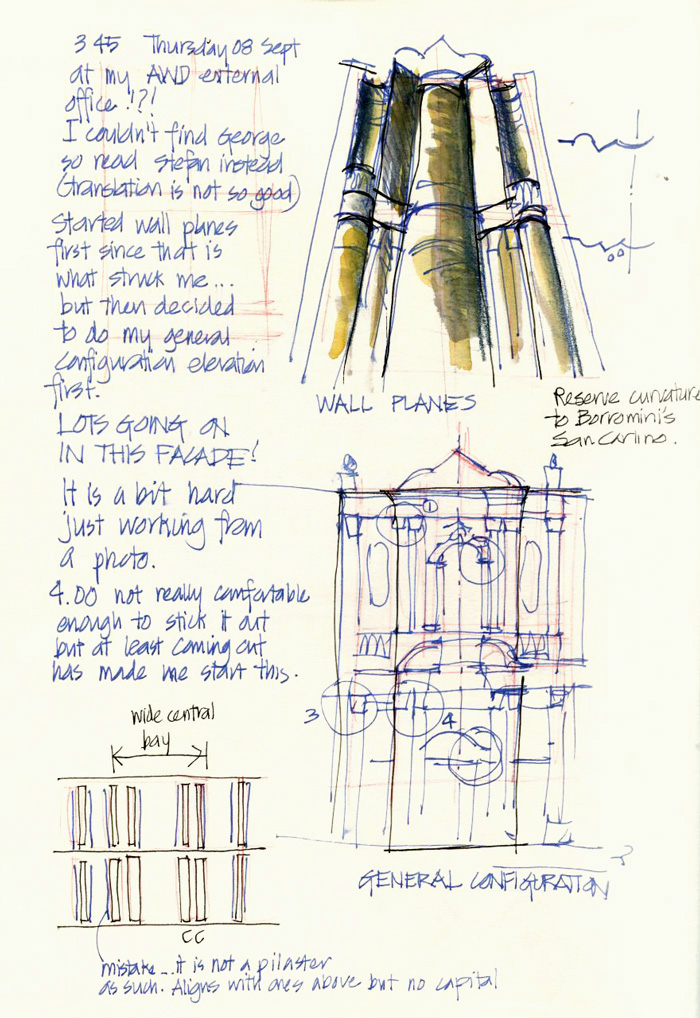 3 45 Thursday 08 Sept
at my AWD external
office!!?!
I couldn't find George
so read Stefan instead
(translation is not so good)
Started wall planes
first since that is
what struck me...
but then decided
to do my general
configuration elevation
first.
LOTS GOING ON
IN THIS FACADE!
It is a bit hard
just working from
a photo.
4.00 not really comfortable
enough to stick it out
but at least coming out
has made me start this.
WALL PLANES
Reserve curvature
to Borromini's
San Carlino.
1
3
4
2
GENERAL CONFIGURATION
wide central
bay
CC
mistake...it is not a pilaster
as such. Aligns with ones above but no capital